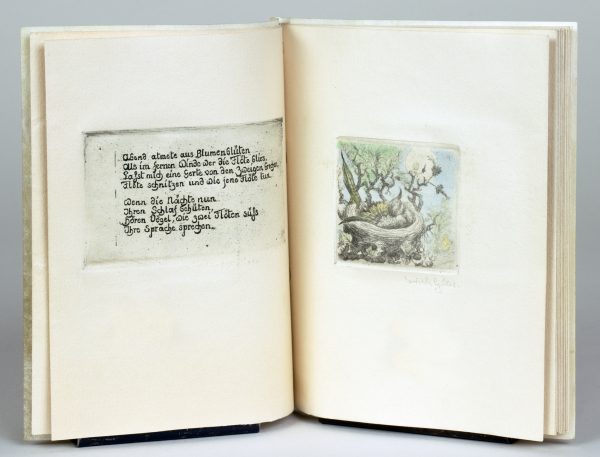 Abend atmete aus Blumenblüten
Als im fernen Winde wer die Flöte blies.
Laßt mich eine Gerte von den Zweigen brechen,
Flöte schnitzen und wie jene Flöte tun.
Wenn die Nächte nun
Ihren Schlaf behüten,
Hören Vögel, wie zwei Flöten süß
Ihre Sprache sprechen.